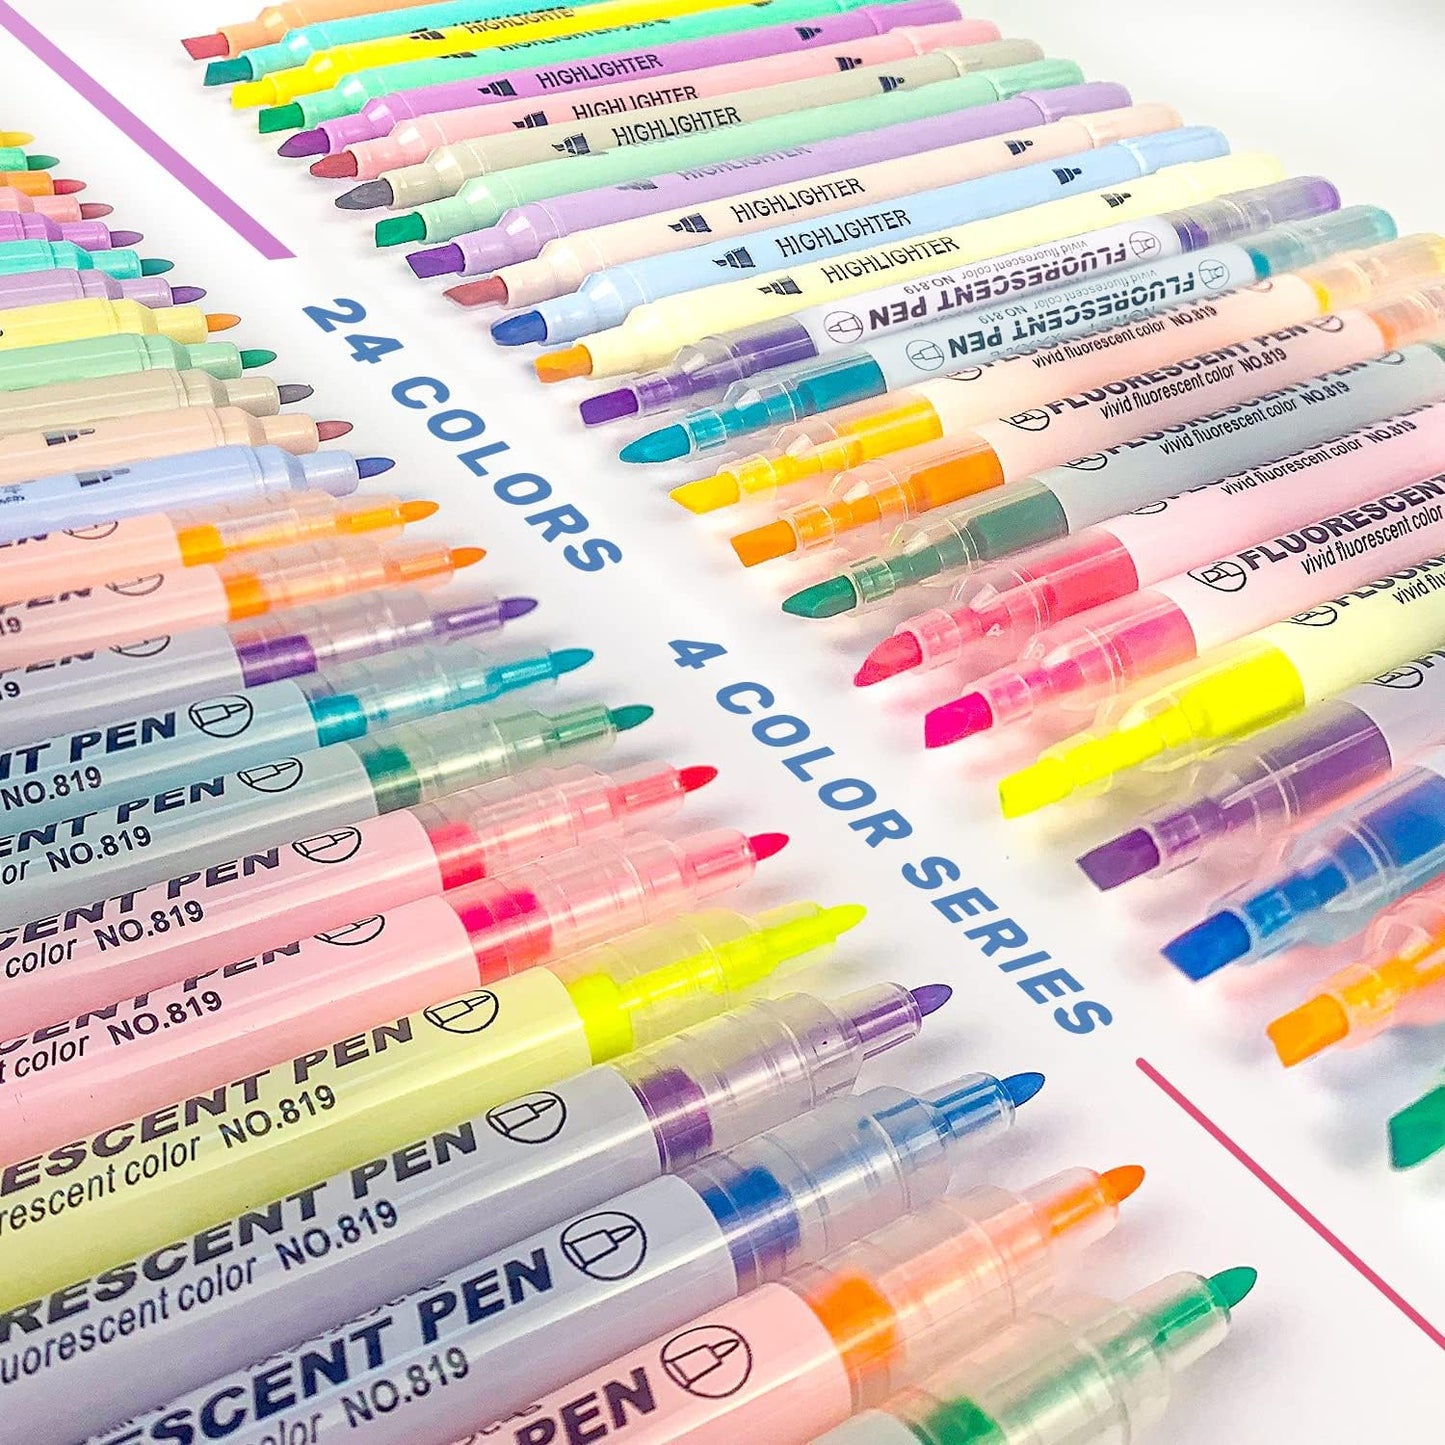 HIGHLIGHTE
HIGHLIGHTER
HIGHLIGHTER
HIGHLIGHTER
HIGHLIGHTER
HIGHLIGHTER
HIGHLIGHTER
HIGHLIGHTER
FLUORESCENT PEN
vivid fluorescent color NO.819
FLUORESCENT PEN
vivid fluorescent color NO.819
vivid fluorescent color NO.819
FLUORESCENT PEN
vivid fluorescent color NO.819
vivid fluorescent color NO.819
vivid fluorescent color NO.819
FLUORESCENT
vivid fluorescent color
24 COLORS
4 COLOR SERIES
PEN
NT PEN
NO.819
ENT PEN
or NO.819
CENT PEN
color NO.819
CENT PEN
t color NO.819
ESCENT PEN
rescent color NO.819
RESCENT PEN
uorescent color NO.819
SCENT PEN
color NO.819
PEN